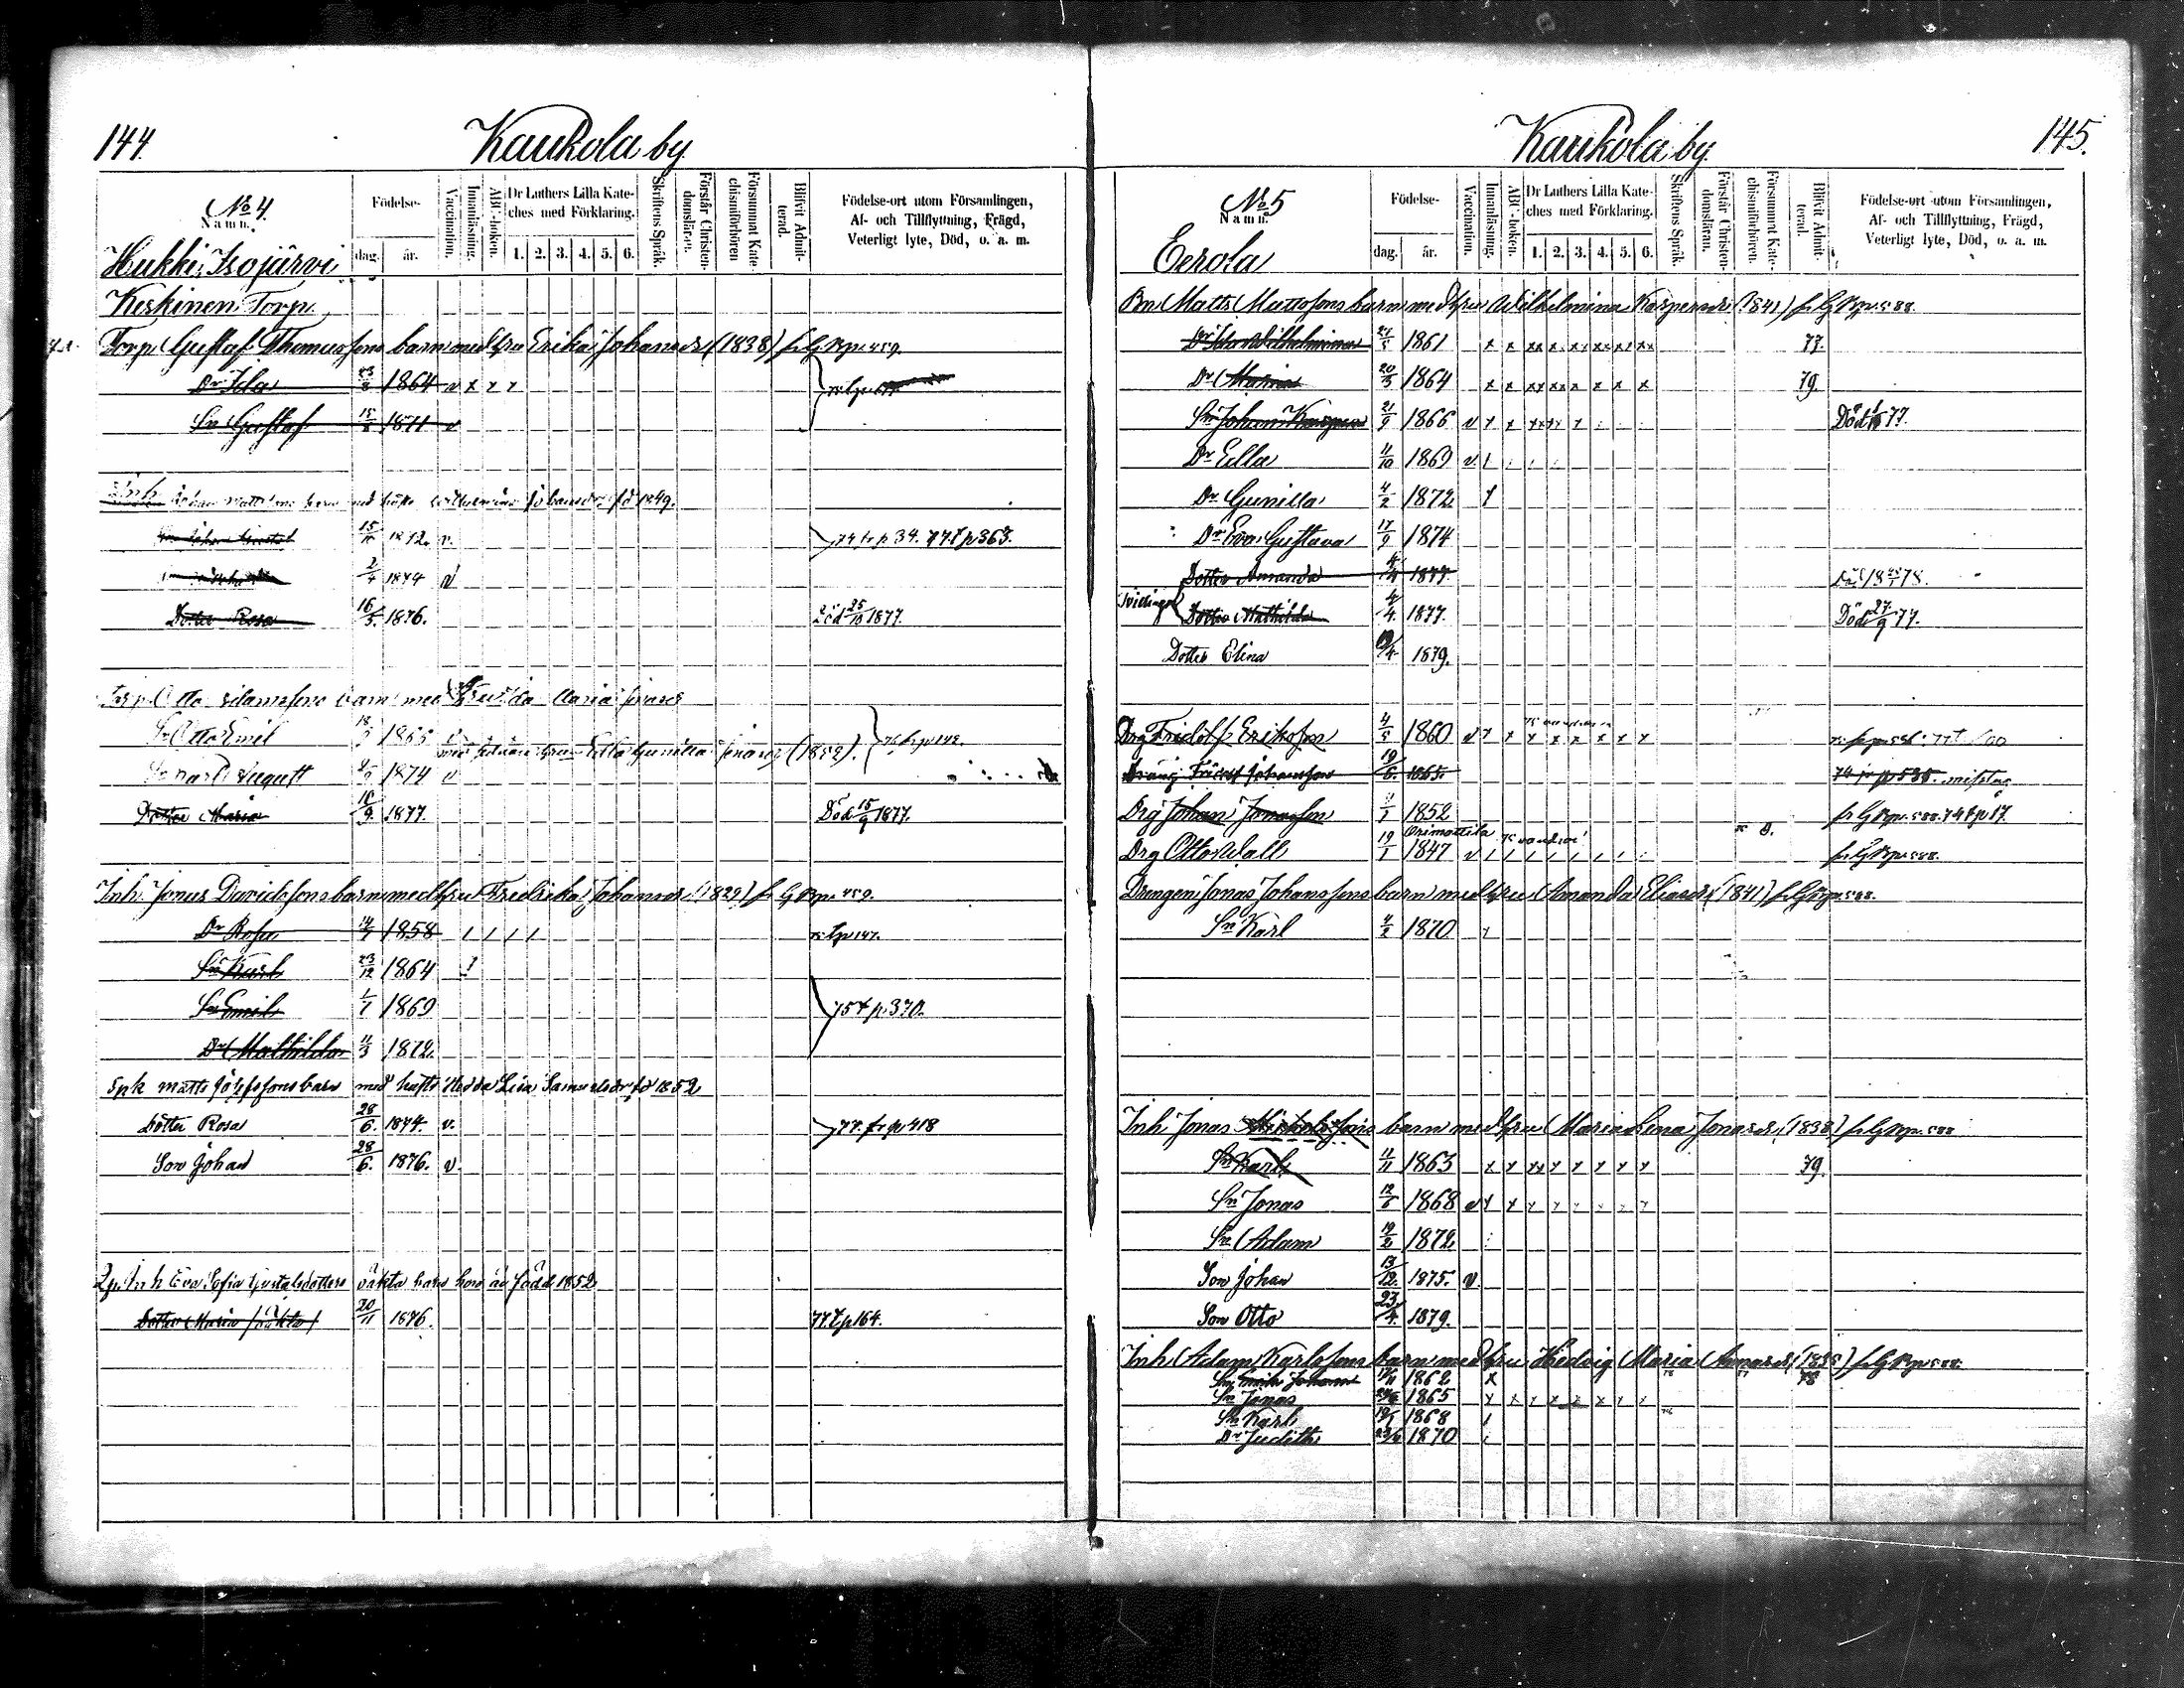 144.
Kaukola by.
No 4.
Namn.
Födelse-
dag.
år.
Vaccination.
Innanläsning.
ABC-boken.
Dr Luthers Lilla Kate-
ches med Förklaring.
1. 2. 3. 4. 5. 6.
Skriftens Språk.
Förstår Christen-
domsläran.
Försummat Kate-
chismiförhören
Blifvit Admit-
terad.
Födelse-ort utom Församlingen,
Af- och Tillflyttning, Frägd,
Veterligt lyte, Död, o. a. m.
Hukki, Isojärvi
Keskinen Torp.
Torp. Gustaf Thomassons barn med hru Erika Johansdr (1838) fr G Bp. 459.
Dr Ida 23/8 1864 v x x x
Sn Gustaf 1871 v
Johan Mattssons barn med Wilhelmina Johansdr fd 1849.
1872. v. 74 fr p 34. 77 t p 363.
2/4 1874 v
Dotter Rosa 16/5. 1876. Död 25/10 1877.
Torp. Otto Adamssons barn med hru Ida Maria
Sn Otto Emil 1865
med hru Edla Gunilla (1852).
August 1874 v
Dotter Maria 16/9. 1877. Död 15/9 1877.
Inh. Jonas Davidssons barn med hru Fredrika Johansdr (1829) fr G Bp. 459.
Dr Rosa 14/7 1858 / / / / t p 147.
Sn Karl 23/12 1864 /
Sn Emil 1/1 1869 75 t p. 370.
Dr Mathilda 11/3 1872.
Spk Matts Josefssons barn med hustr Hedda Lisa Samuelsdr fd 1852
Dotter Rosa 28/6. 1874. v. 77. fr p 418
Son Johan 28/6. 1876. v.
Inh Eva Sofia Gustafsdotters oäkta barn hon är född 1852
Dotter Maria (oäkta) 20/11 1876. 77 t p 164.
145.
Kaukola by.
No 5
Namn.
Födelse-
dag.
år.
Vaccination.
Innanläsning.
ABC-boken.
Dr Luthers Lilla Kate-
ches med Förklaring.
1. 2. 3. 4. 5. 6.
Skriftens Språk.
Förstår Christen-
domsläran.
Försummat Kate-
chismiförhören.
Blifvit Admit-
terad.
Födelse-ort utom Församlingen,
Af- och Tillflyttning, Frägd,
Veterligt lyte, Död, o. a. m.
Eerola
Bn Matts Mattssons barn med hru Wilhelmina Kaspersdr (1841) fr G Bp. 588.
Dr Ida Wilhelmina 1861 x x xx x xx xx xx xx 77.
Dr Maria 20/3 1864 x x xx xx x x x x 79.
Sn Johan Kasper 21/9 1866 v x x xxxx x Död 77.
Dr Edla 11/10 1869 v. /
Dr Gunilla 4/2 1872
Dr Eva Gustava 17/9 1874
Dotter Amanda 4/4 1877. Död 78.
Tvillingar Dotter Mathilda 4/4. 1877. Död 27/9 77.
Dotter Elina 1879.
Drg Fridolf Eriksson 4/5 1860 v x x x x x x x x
Dräng Johansson 19/6. 1865. 74 fr p 535. misstag
Drg Johan Jonasson 1852 fr G Bp. 588. 74 t p 17.
Orimattila
Drg Otto Wall 19/1 1847 v / / / / / / fr G Bp. 588.
Drängen Jonas Johanssons barn med hru Amanda Eliasdr (1841) fr G Bp. 588.
Sn Karl 4/2 1870
Inh Jonas barn med hru Maria Lena Jonasdr (1838) fr G Bp. 588
Sn Karl 11/11 1863 x x xx x x x x x 79.
Sn Jonas 12/6 1868 v x x x x x x x x
Sn Adam 19/2 1872
Son Johan 13/12. 1875. v.
Son Otto 23/4. 1879.
Inh. Adam Karlssons barn med hru Hedvig Maria Annasdr (1835) fr G Bp. 588.
Sn Johan 1862 x 78
Sn Jonas 1865 x x x x x x x x
Sn Karl 1868 /
Dr Judith 1870